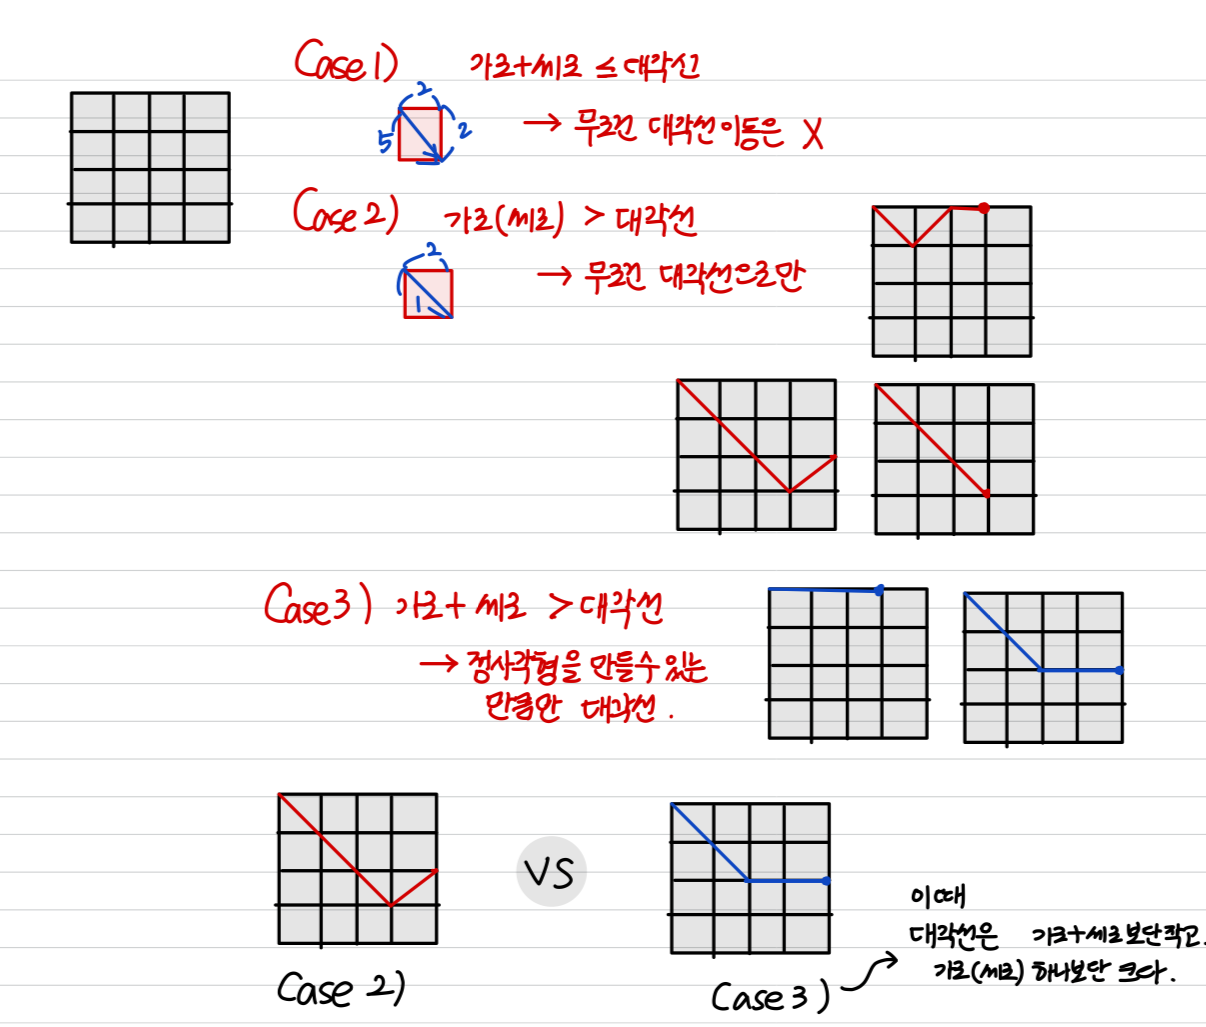 Case 1) 가로+세로 ≤ 대각선
2
5 2
→ 무조건 대각선이동은 X
Case 2) 가로(세로) > 대각선
2
1
→ 무조건 대각선으로만
Case 3) 가로+세로 > 대각선
→ 정사각형을 만들수 있는
만큼만 대각선.
VS
이때
대각선은 가로+세로보단작고.
가로(세로) 하나보단 크다.
Case 2)
Case 3)